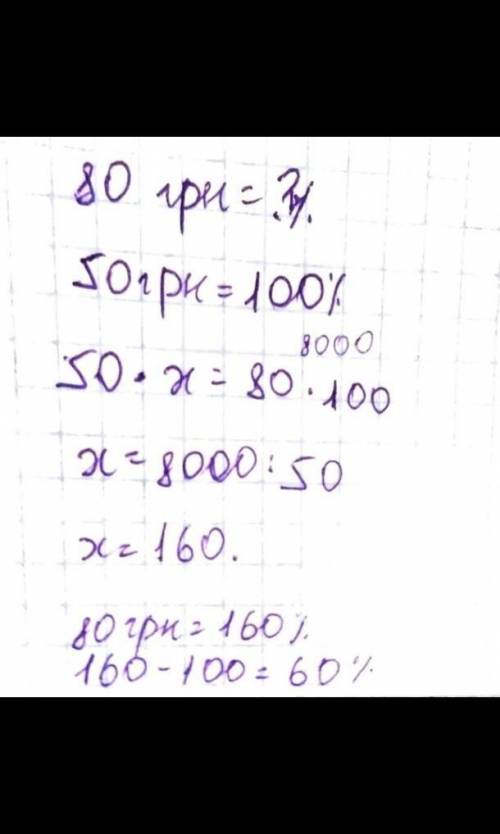 80 грн = ?%
50 грн = 100%
8000
50 · x = 80 · 100
x = 8000 : 50
x = 160.
80 грн = 160%
160 - 100 = 60%